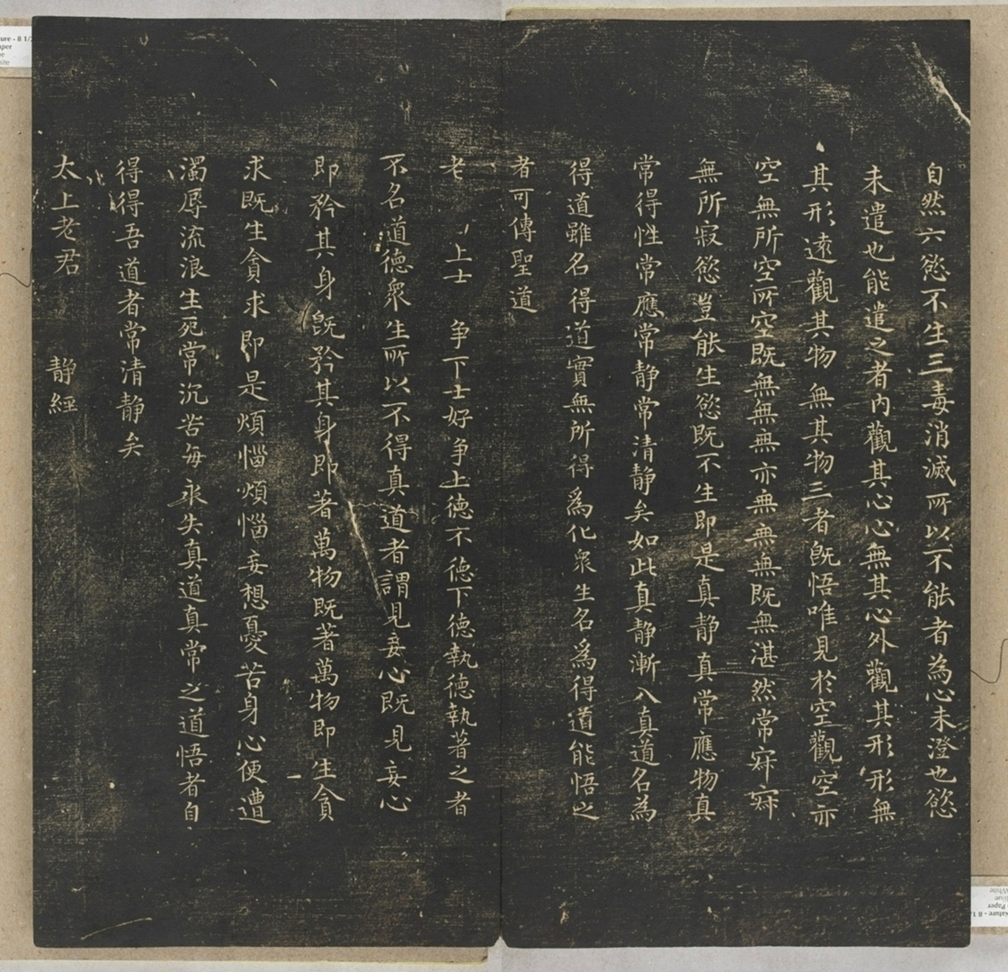 自然六慾不生三毒消滅所以不能者為心未澄也慾
未遣也能遣之者内觀其心心無其心外觀其形形無
其形遠觀其物無其物三者旣悟唯見於空觀空亦
空無所空所空既無無無亦無無無既無湛然常寂寂
無所寂慾豈能生慾既不生即是真静真常應物真
常得性常應常静常清静矣如此真静漸入真道名為
得道雖名得道實無所得爲化衆生名爲得道能悟之
者可傳聖道
老 上士 争下士好争上德不德下德執德執著之者
不名道德衆生所以不得真道者謂見妄心既見妄心
即矜其身旣矜其身即著萬物既著萬物即生貪
求既生貪求即是煩惱煩惱妄想憂苦身心便遭
濁辱流浪生死常沉苦海永失真道真常之道悟者自
得得吾道者常清静矣
太上老君 静經
ature - 8 1/2
Paper
White